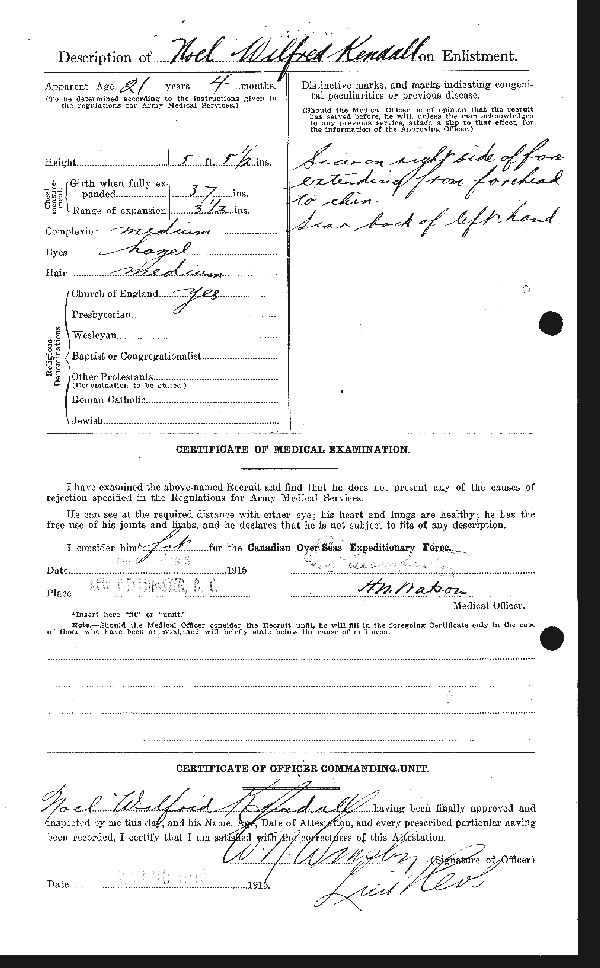 Description of Noel Wilfred Kendall on Enlistment.
Apparent Age 21 years 4 months.
(To be determined according to the instructions given in
the regulations for Army Medical Services.)
Distinctive marks, and marks indicating congeni-
tal peculiarities or previous disease.
(Should the Medical Officer be of opinion that the recruit
has served before, he will, unless the man acknowledges
to any previous service, attach a slip to that effect, for
the information of the Approving Officer.)
Height 5 ft. 5 1/2 ins.
Chest measurement
Girth when fully ex-
panded 37 ins.
Range of expansion 3 1/2 ins.
Complexion medium
Eyes hazel
Hair medium
Scar on right side of face
extending from forehead
to chin.
Scar back of left hand
Religious Denominations
Church of England Yes
Presbyterian
Wesleyan
Baptist or Congregationalist
Other Protestants
(Denomination to be stated.)
Roman Catholic
Jewish
CERTIFICATE OF MEDICAL EXAMINATION.
I have examined the above-named Recruit and find that he does not present any of the causes of
rejection specified in the Regulations for Army Medical Services.
He can see at the required distance with either eye; his heart and lungs are healthy; he has the
free use of his joints and limbs, and he declares that he is not subject to fits of any description.
I consider him* fit for the Canadian Over-Seas Expeditionary Force.
Date 1915
Place NEW WESTMINSTER, B. C.
Watson
Medical Officer.
*Insert here "fit" or "unfit."
Note.—Should the Medical Officer consider the Recruit unfit, he will fill in the foregoing Certificate only in the case
of those who have been attested, and will briefly state below the cause of unfitness.
CERTIFICATE OF OFFICER COMMANDING UNIT.
Noel Wilfrid Kendall having been finally approved and
inspected by me this day, and his Name, Age, Date of Attestation, and every prescribed particular having
been recorded, I certify that I am satisfied with the correctness of this Attestation.
(Signature of Officer)
Date 1915